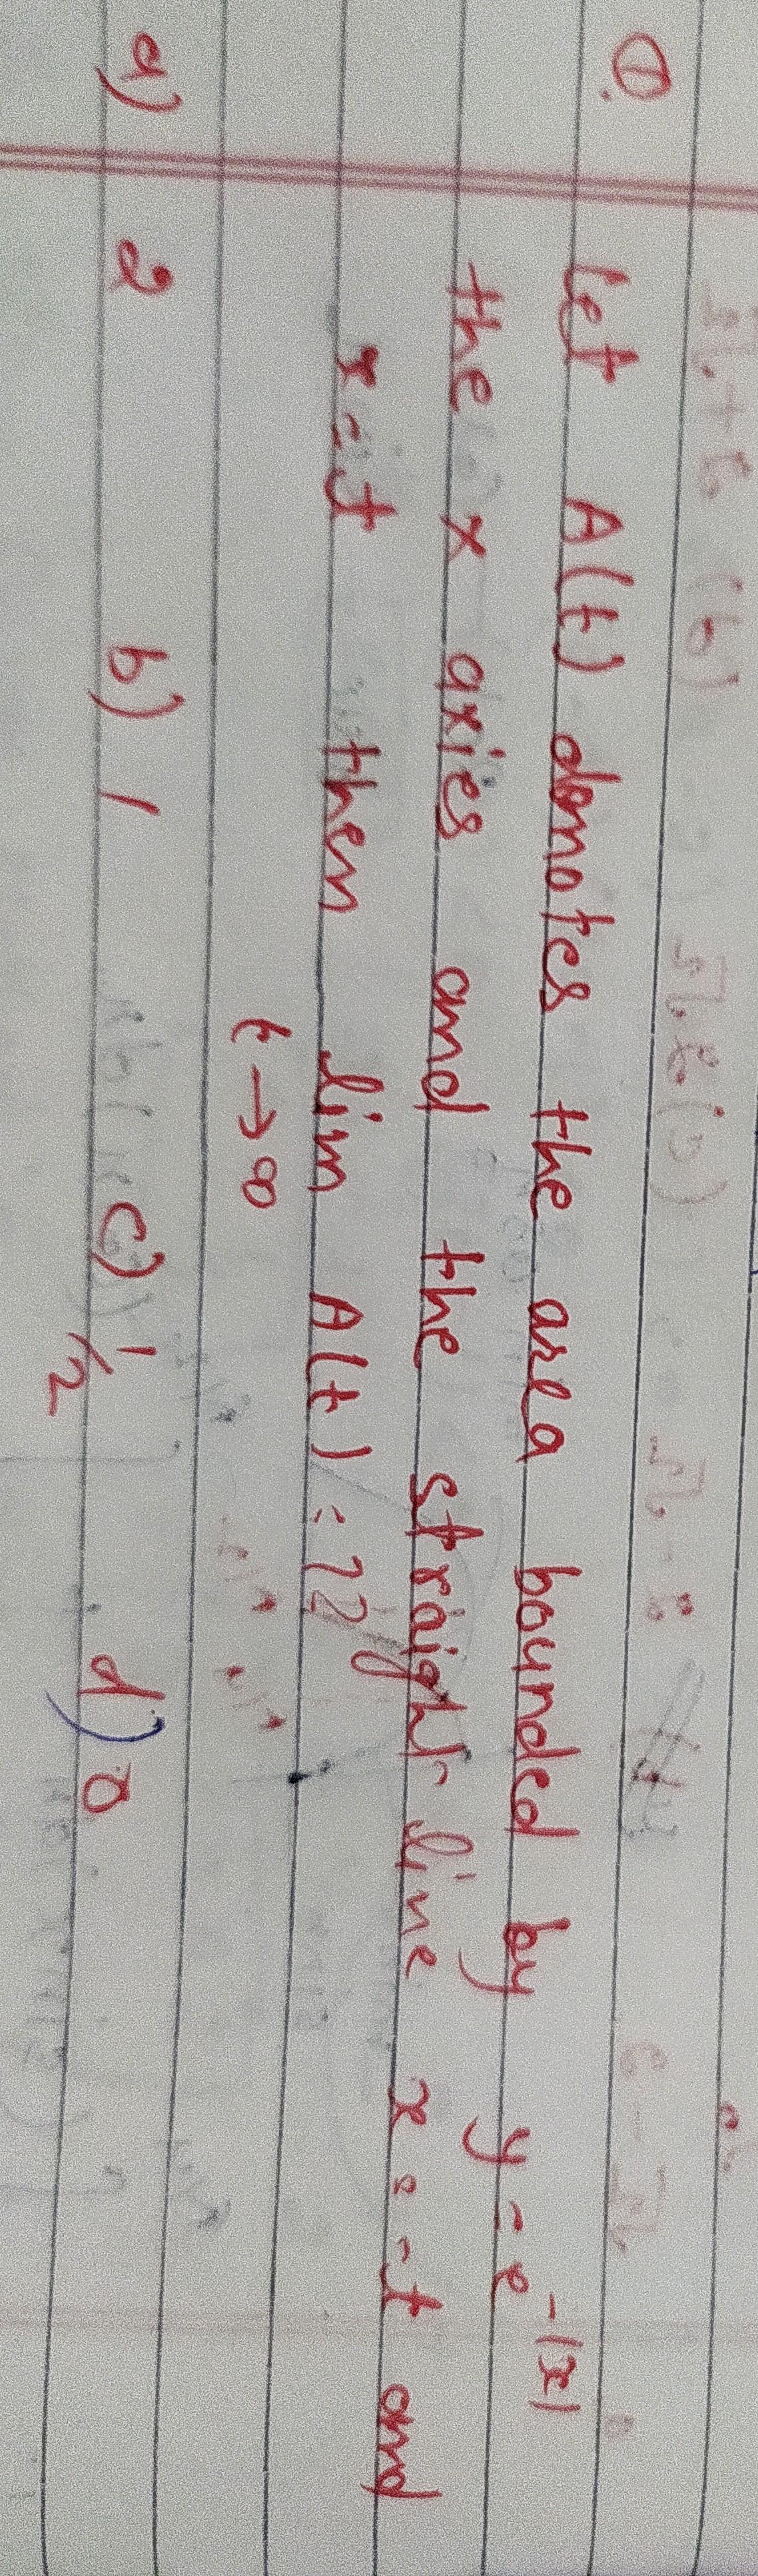 ①. Let A(t) domotes the area bounded by y = e^-|x|
the x axies and the straight line x = -t and
x=t then lim A(t) = ??
t→∞
a) 2 b) 1 c) 1/2 d) 0